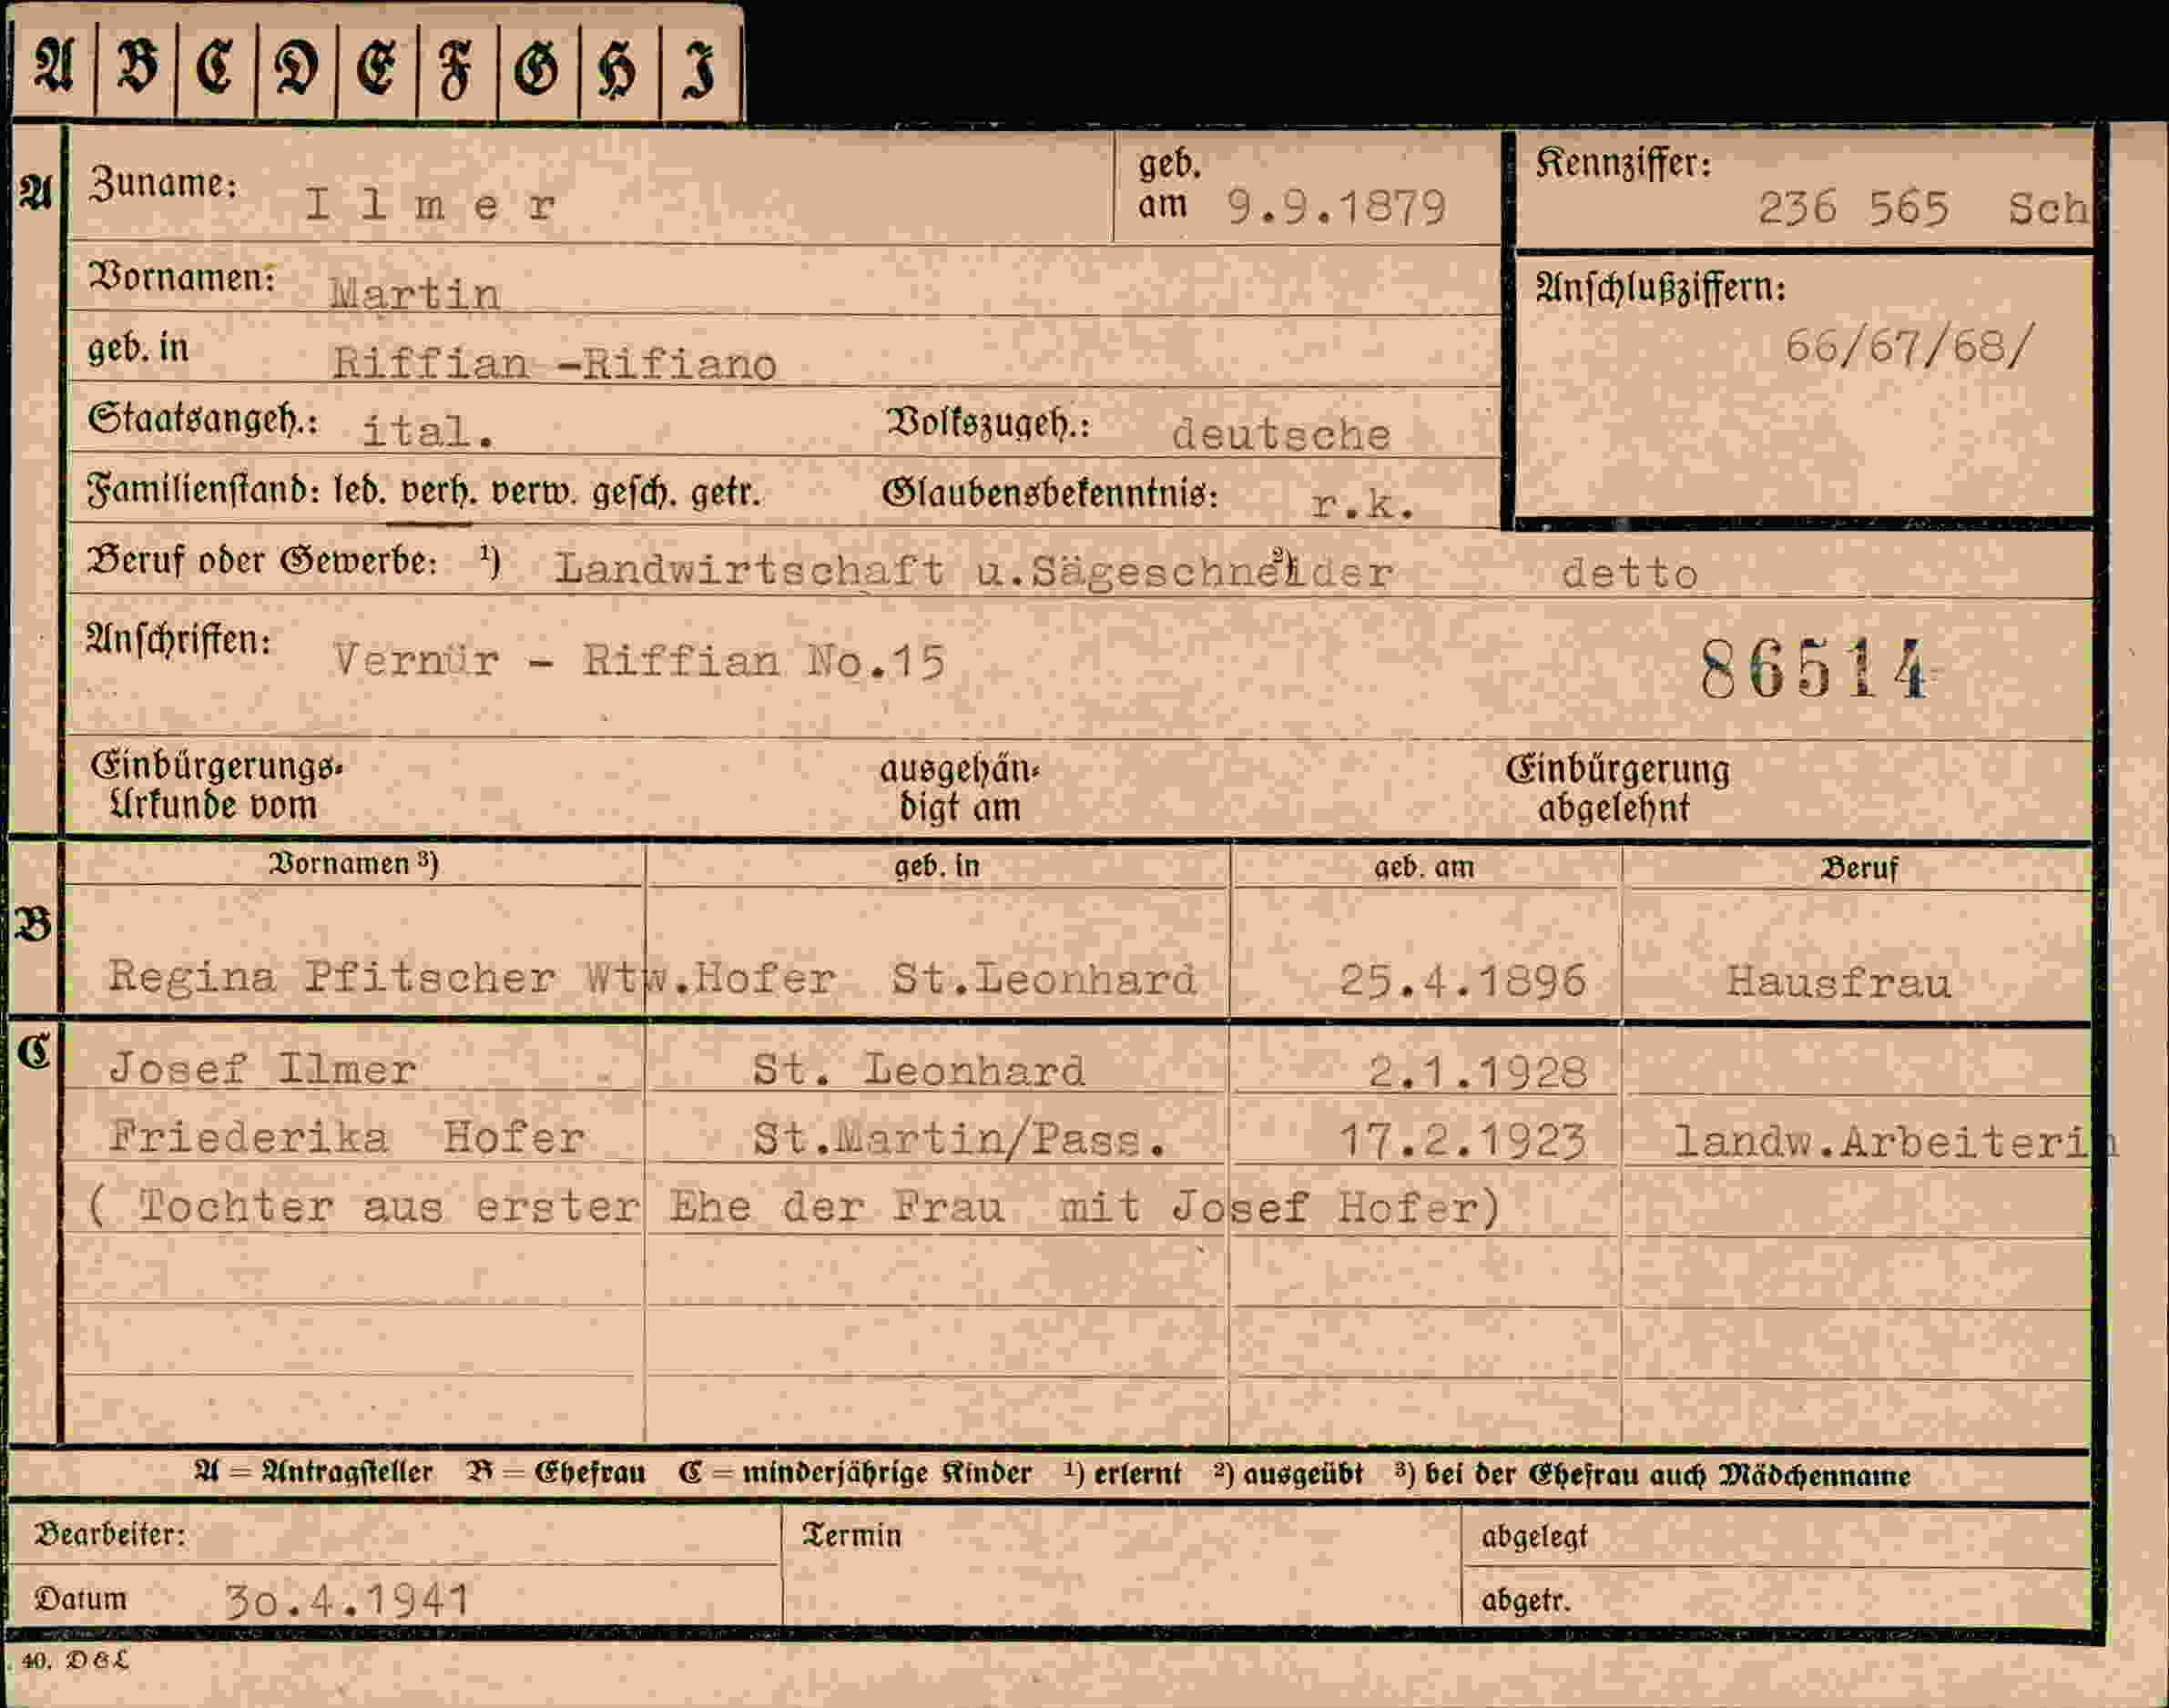 A B C D E F G H I
A Zuname: Ilmer geb. am 9.9.1879 Kennziffer: 236 565 Sch
Vornamen: Martin Anschlußziffern:
66/67/68/
geb. in Riffian -Rifiano
Staatsangeh.: ital. Volkszugeh.: deutsche
Familienstand: led. verh. verw. gesch. getr. Glaubensbekenntnis: r.k.
Beruf oder Gewerbe: ¹) Landwirtschaft u.Sägeschneider ²) detto
Anschriften: Vernür - Riffian No.15 86514
Einbürgerungs- ausgehän- Einbürgerung
Urkunde vom digt am abgelehnt
Vornamen ³) geb. in geb. am Beruf
B
Regina Pfitscher Wtw.Hofer St.Leonhard 25.4.1896 Hausfrau
C Josef Ilmer St. Leonhard 2.1.1928
Friederika Hofer St.Martin/Pass. 17.2.1923 landw.Arbeiterin
( Tochter aus erster Ehe der Frau mit Josef Hofer)
A = Antragsteller B = Ehefrau C = minderjährige Kinder ¹) erlernt ²) ausgeübt ³) bei der Ehefrau auch Mädchenname
Bearbeiter: Termin abgelegt
Datum 30.4.1941 abgetr.
40. D&L